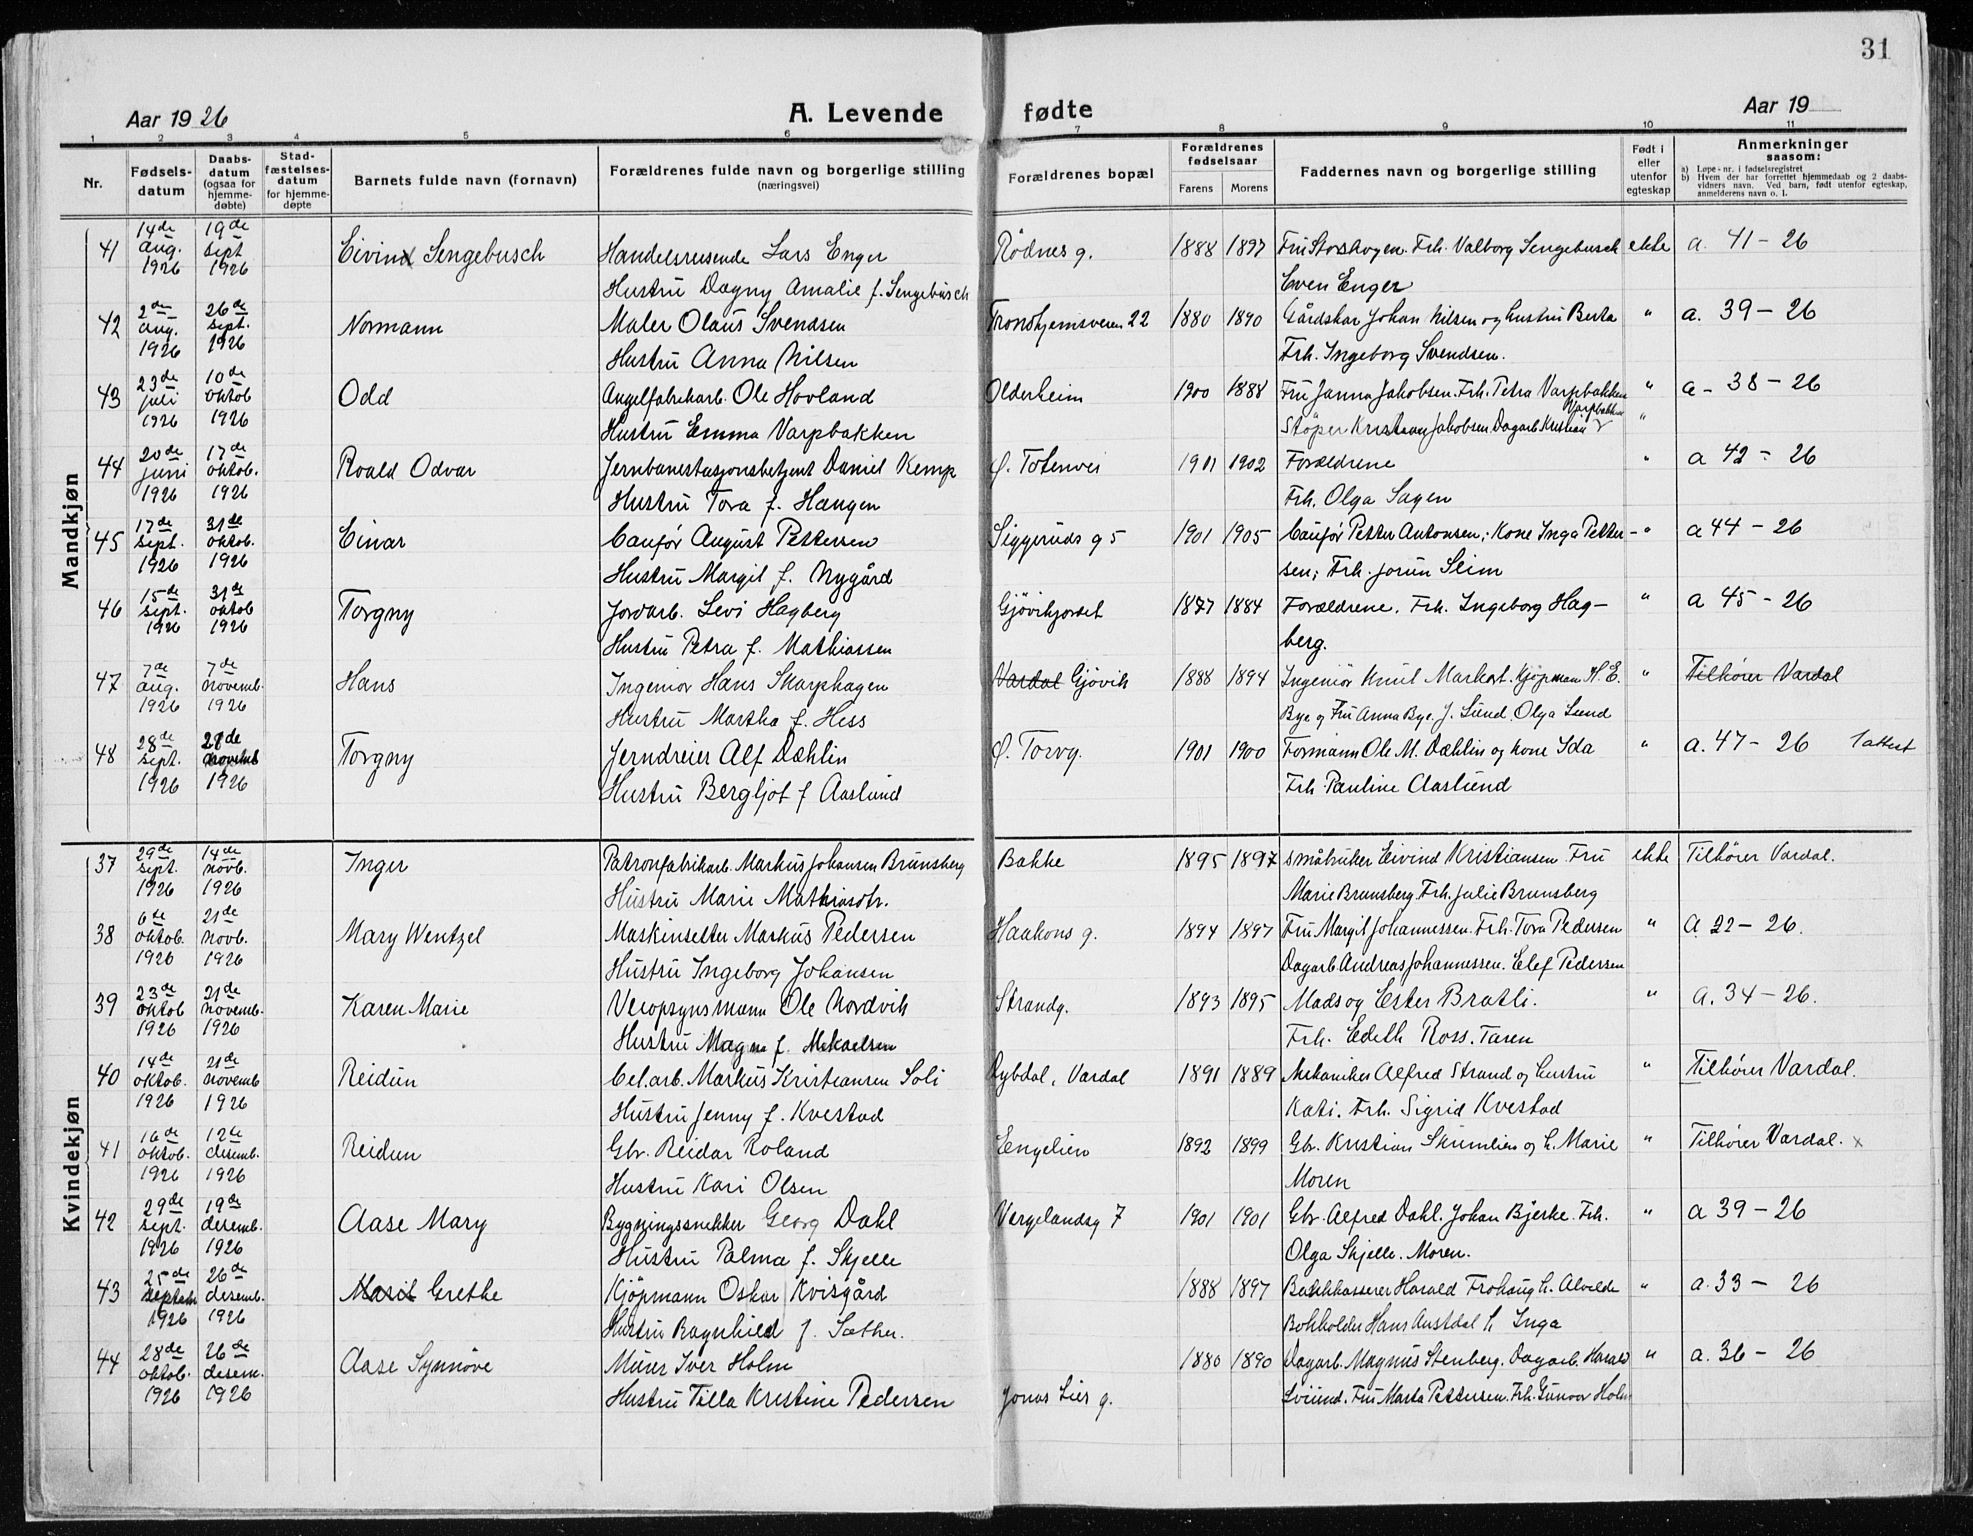 31
Aar 1926 A. Levende fødte Aar 19
1 2 3 4 5 6 7 8 9 10 11
Nr. Fødselsdatum Daabsdatum (ogsaa for hjemmedøbte) Stadfæstelsesdatum for hjemmedøpte Barnets fulde navn (fornavn) Forældrenes fulde navn og borgerlige stilling (næringsvei) Forældrenes bopæl Forældrenes fødselsaar Farens Morens Faddernes navn og borgerlige stilling Født i eller utenfor egteskap Anmerkninger saasom:
a) Løpe-nr. i fødselsregistret
b) Hvem der har forrettet hjemmedaab og 2 daabsvidners navn. Ved barn, født utenfor egteskap, anmelderens navn o. l.
Mandkjøn
41 14de aug. 1926 19de sept 1926 Eivind Sengebusch Handelsreisende Lars Enger Rødnes g. 1888 1897 Fru Storshogen. Frk. Valborg Sengebusch ekte a. 41-26
Hustru Dagny Amalie f. Sengebusch Even Enger
42 2den aug. 1926 26de sept. 1926 Normann Maler Olaus Svendsen Trondhjemsveien 22 1880 1890 Gårdskar Johan Nilsen og hustru Berta " a. 39-26
Hustru Anna Nilsen Frk. Ingeborg Svendsen.
43 23de juli 1926 10de oktob 1926 Odd Angelfabrikarb. Ole Hovland Olderheim 1900 1888 Fru Janna Jakobsen. Frk. Petra Varpbakken " a- 38-26
Hustru Emma Varpbakken Støper Kristian Jakobsen. Dagarb Kristian Varpbakken "
44 20de juni 1926 17de oktob. 1926 Roald Odvar Jernbanestasjonsbetjent Daniel Kemp Ø. Totenvei 1901 1902 Forældrene " a 42-26
Hustru Tora f. Haugen Frk. Olga Sagen
45 17de sept. 1926 31de oktob. 1926 Einar Caufør August Pettersen Siggeruds g 5 1901 1905 Caufør Petter Antonsen; Kone Inga Petter- " a 44-26
Hustru Margit f. Nygård sen; Frk. Jorun Seim
46 15de sept. 1926 31de oktob 1926 Torgny Jordarb. Levi Hagberg Gjøvikjordet 1877 1884 Forældrene. Frk. Ingeborg Hag- " a 45-26
Hustru Petra f. Mathiassen berg.
47 7de aug. 1926 7de novemb. 1926 Hans Ingeniør Hans Skarphagen Vardal Gjøvik 1888 1894 Ingeniør Knut Markert. Kjøpman H. E. " Tilhører Vardal
Hustru Martha f. Hess Bye og Fru Anna Bye. J. Lund. Olga Lund
48 28de sept. 1926 28de novemb 1926 Torgny Jerndreier Alf Dæhlin Ø. Torvg. 1901 1900 Formann Ole M. Dæhlin og kone Ida " a. 47-26 1 attest
Hustru Bergljot f Aaslund Frk Pauline Aaslund
Kvindekjøn
37 29de sept. 1926 14de novb. 1926 Inger Patronfabrikarb. Markus Johansen Brunsberg Bakke 1895 1897 Småbruker Eivind Kristiansen. Fru ekte Tilhører Vardal.
Hustru Marie Mathiasdtr. Marie Brunsberg. Frk. Julie Brunsberg
38 6te oktob. 1926 21de novb. 1926 Mary Wentzel Maskinsetter Markus Pedersen Haakons g. 1894 1897 Fru Margit Johannessen. Frk. Tora Pedersen " a. 22-26.
Hustru Ingeborg Johansen Dagarb Andreas Johannessen. Elef Pedersen
39 23de oktob 1926 21de novemb. 1926 Karen Marie Veiopsynsmann Ole Nordvik Strandg. 1893 1895 Mads og Ester Bratli. " a. 34-26.
Hustru Magna f. Mikaelsen Frk. Edith Ross. Faren
40 14de oktob. 1926 21de novemb 1926 Reidun Cel.arb. Markus Kristiansen Soli Dybdal, Vardal 1891 1889 Mekaniker Alfred Strand og hustru " Tilhører Vardal.
Hustru Jenny f. Kvestad Kati. Frk. Sigrid Kvestad
41 16de oktob. 1926 12te desemb. 1926 Reidun Gbr. Reidar Roland Engelien 1892 1899 Gbr. Kristian Skumlien og h. Marie " Tilhører Vardal. x
Hustru Kari Olsen Moren
42 29de sept. 1926 19de desemb. 1926 Aase Mary Bygningssnekker Georg Dahl Vergelandsg 7 1901 1901 Gbr. Alfred Dahl. Johan Bjerke. Frk. " a 39-26
Hustru Palma f. Skjelle Olga Skjelle. Moren.
43 25de septemb 1926 26de desemb. 1926 Marit Grethe Kjøpmann Oskar Kvisgård 1888 1897 Bankkasserer Harald Frohaug h. Alvilde " a. 33-26
Hustru Ragnhild f. Sæther. Bokholder Hans Austdal h Inga
44 28de oktob. 1926 26de desem. 1926 Aase Synnøve Murer Iver Holm 1880 1890 Dagarb. Magnus Stenberg. Dagarb. Harald " a. 36-26
Hustru Tilla Kristine Pedersen Jonas Lies g. Fru Marta Pettersen. Frk. Gunvor Holm